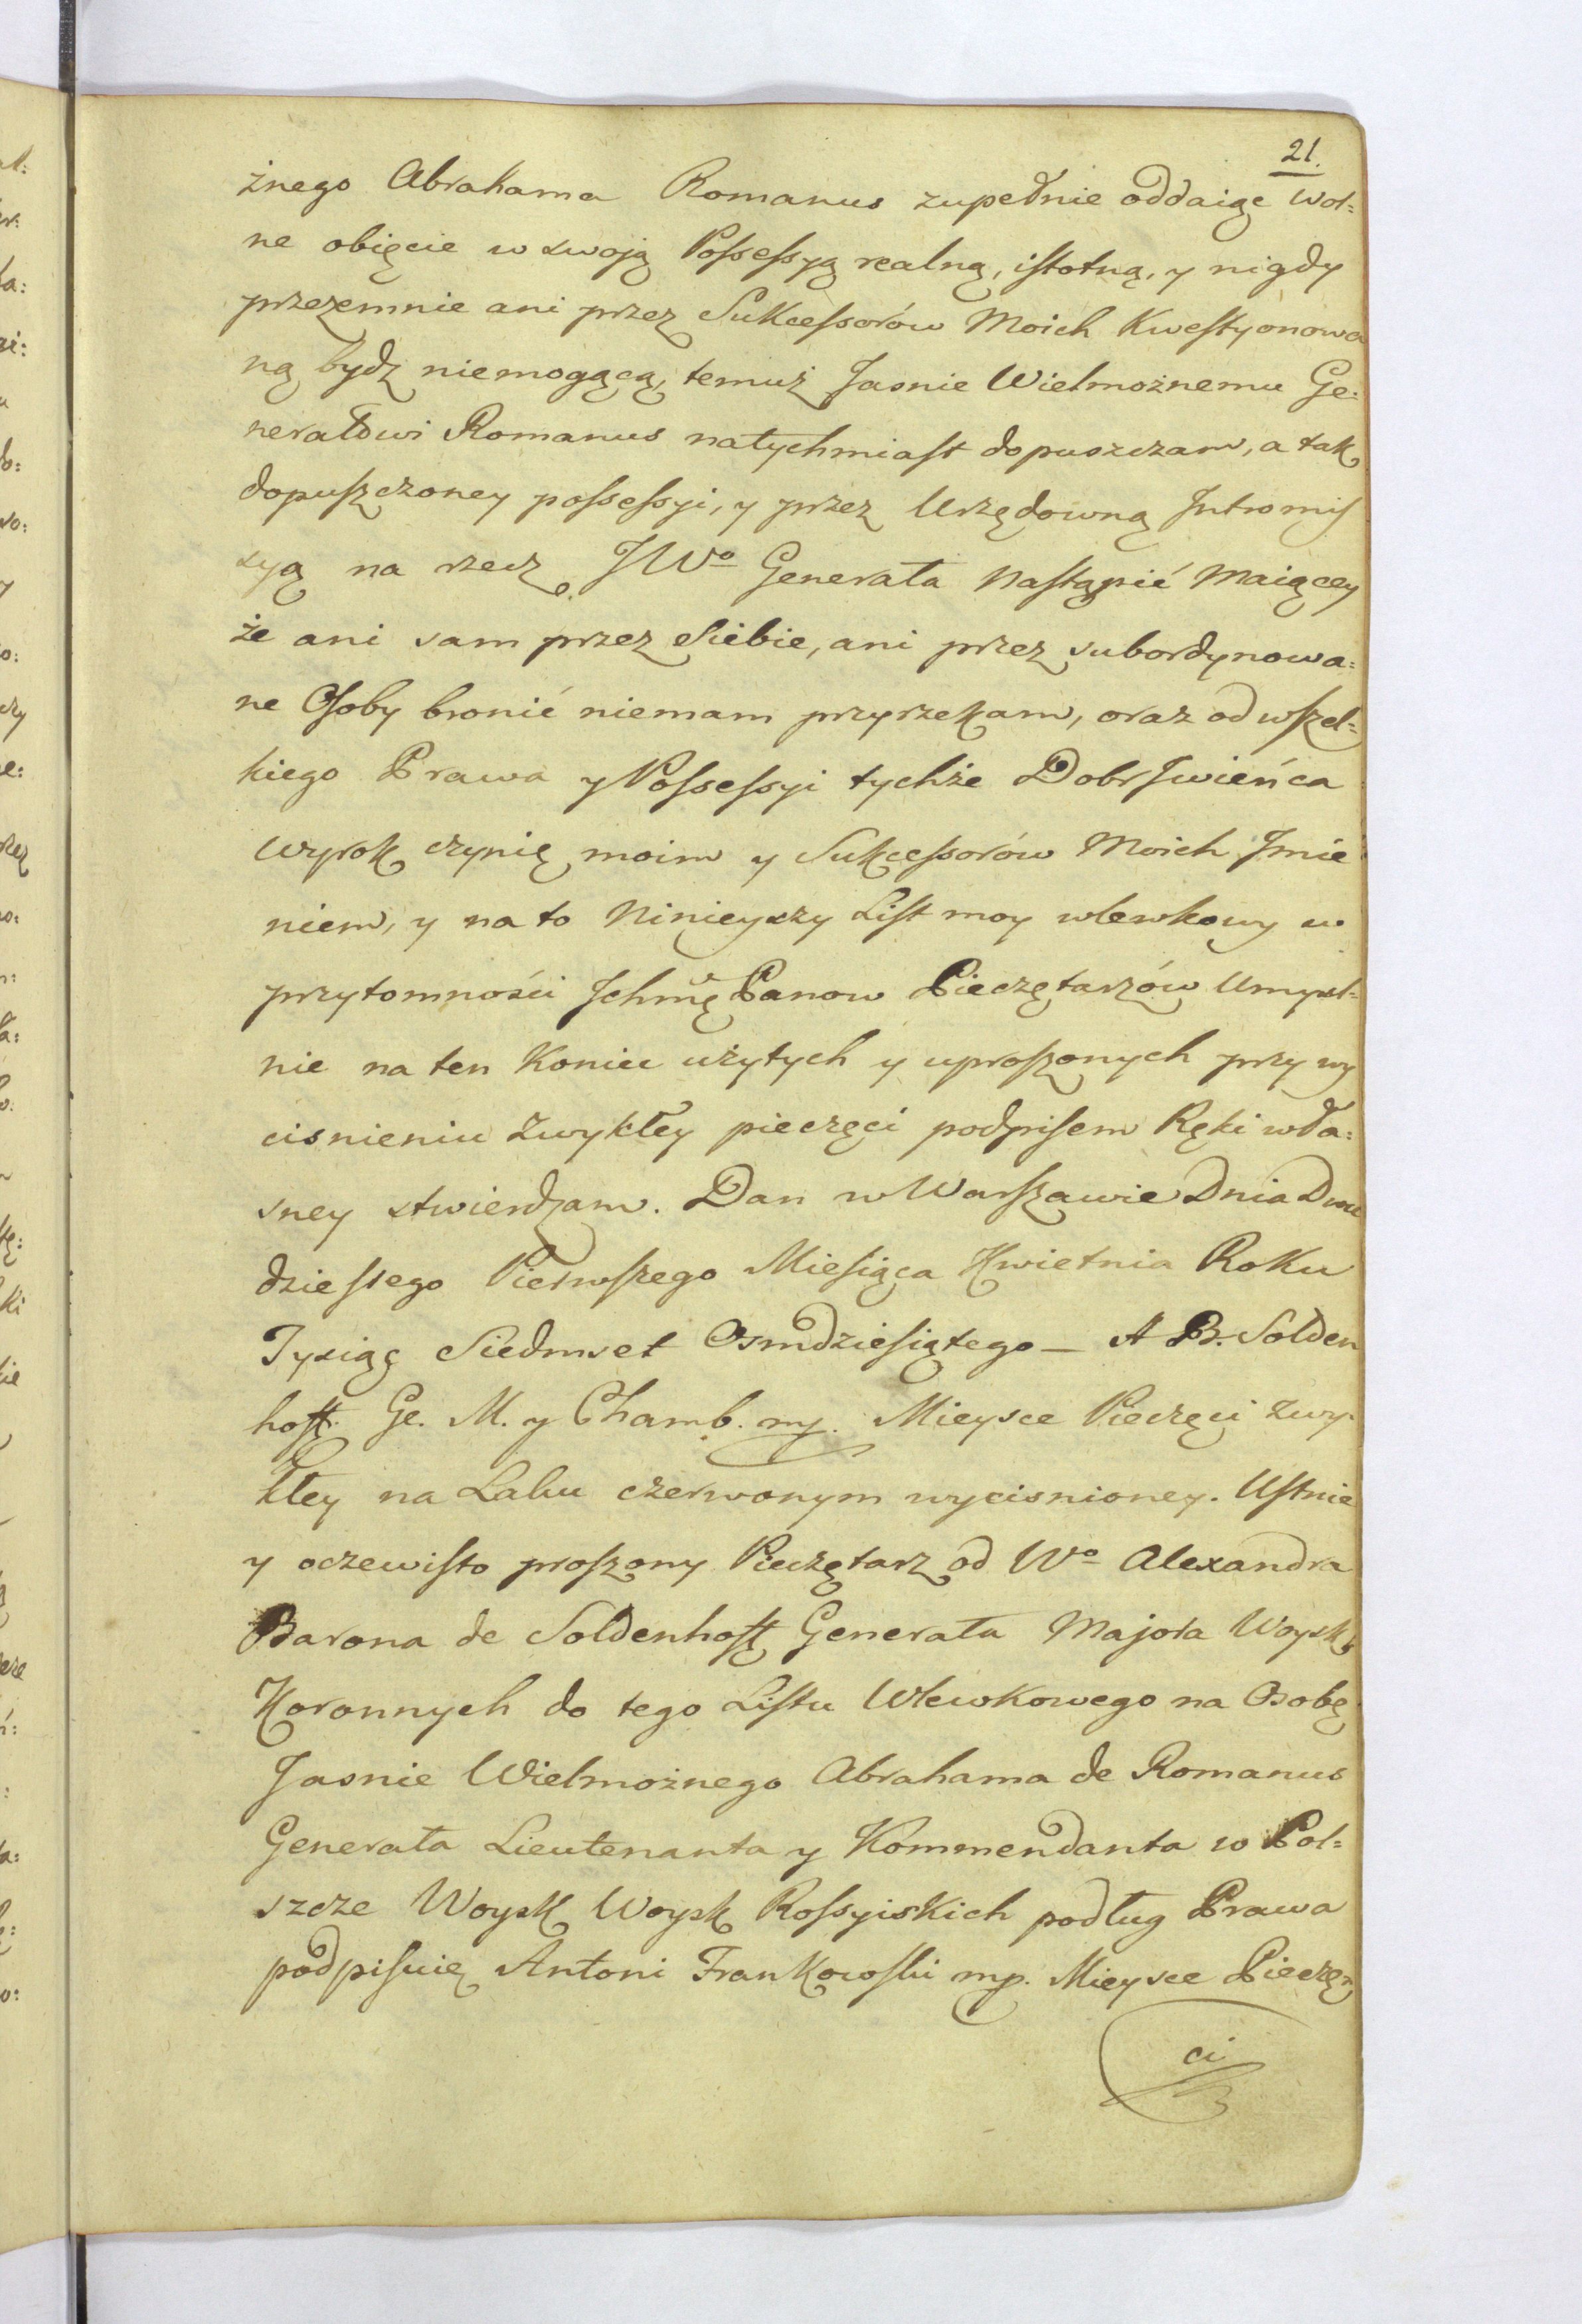 21.
żnego Abrahama Romanus zupełnie oddaię wol=
ne obięcie w swoją Possessyą realną, istotną, y nigdy
przezemnie ani przez Sukcessorów Moich Kwestyonowa
ną bydz niemogącą, temuż Jasnie Wielmożnemu Ge:
nerałowi Romanus natychmiast dopuszczam, a tak
dopuszczoney possessyi, y przez Urzędowną Intromis
syą na rzecz JWo Generała Nastąpić Maiącey
że ani sam przez Siebie, ani przez subordynowa:
ne Osoby bronić niemam przyrzekam, oraz od wszel=
kiego Prawa y Possessyi tychże Dobr Iwieńca
wyrok czynię moim y Sukcessorów Moich Imie
niem, y na to Ninieyszy List moy wlewkowy w
przytomności Ichmę Panow Pieczętarzów Umysl=
nie na ten Koniec użytych y uproszonych przy wy
cisnieniu Zwykłey pieczęci podpisem Ręki wła:
sney stwierdzam. Dan w Warszawie Dnia Dwu
dziestego Pierwszego Miesiąca Kwietnia Roku
Tysiąc Siedmset Osmdziesiątego — A B. Solden
hoff. Ge. M. y Chamb. mp. Mieysce Pieczęci zwy
kłey na Laku czerwonym wycisnioney. Ustnie
y oczewisto proszony Pieczętarz od Wo Alexandra
Barona de Soldenhoff Generała Majora Woysk
Koronnych do tego Listu Wlewkowego na Osobę
Jasnie Wielmożnego Abrahama de Romanus
Generała Lieutenanta y Kommendanta w Pol=
szcze Woysk Woysk Rossyiskich podług Prawa
podpisuię Antoni Frankowski mp. Mieysce Pieczę
ci